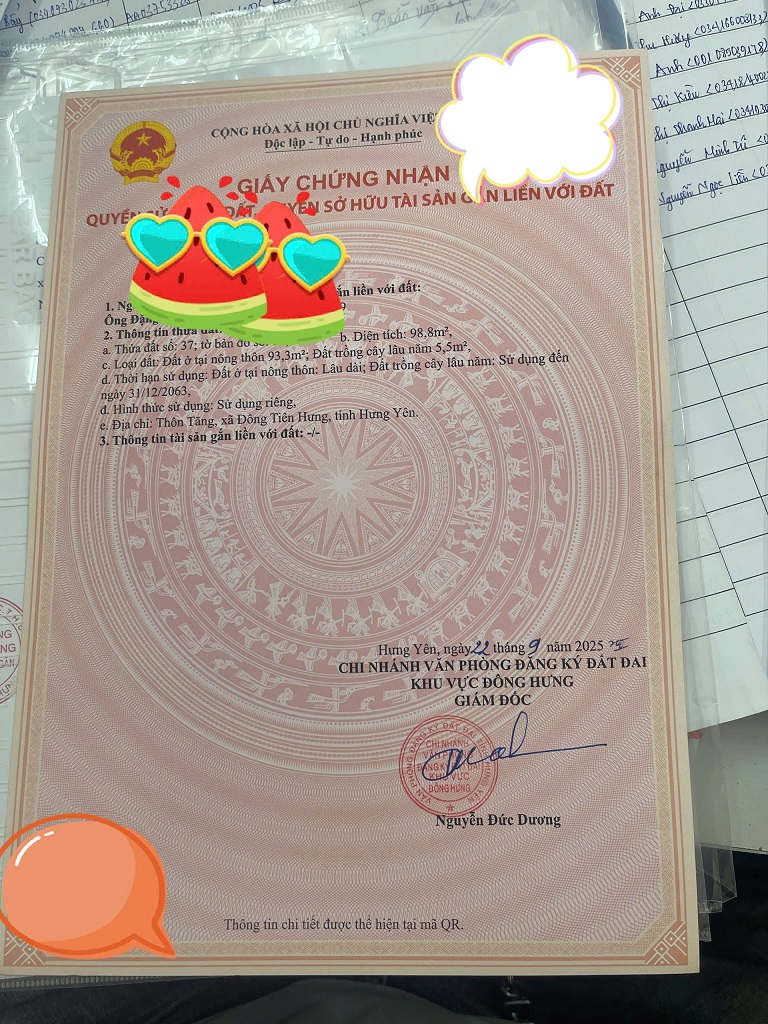 CỘNG HÒA XÃ HỘI CHỦ NGHĨA VIỆ
Độc lập - Tự do - Hạnh phúc
GIẤY CHỨNG NHẬN
QUYỀN SỬ ĐẤT, QUYỀN SỞ HỮU TÀI SẢN GẮN LIỀN VỚI ĐẤT
gắn liền với đất:
1. Ng
Ông Đặng
2. Thông tin thửa đất:
a. Thửa đất số: 37; tờ bản đồ số b. Diện tích: 98,8m²,
c. Loại đất: Đất ở tại nông thôn 93,3m²; Đất trồng cây lâu năm 5,5m²,
d. Thời hạn sử dụng: Đất ở tại nông thôn: Lâu dài; Đất trồng cây lâu năm: Sử dụng đến
ngày 31/12/2063,
đ. Hình thức sử dụng: Sử dụng riêng,
e. Địa chỉ: Thôn Tăng, xã Đông Tiên Hưng, tỉnh Hưng Yên.
3. Thông tin tài sản gắn liền với đất: -/-
Hưng Yên, ngày 22 tháng 9 năm 2025
CHI NHÁNH VĂN PHÒNG ĐĂNG KÝ ĐẤT ĐAI
KHU VỰC ĐÔNG HƯNG
GIÁM ĐỐC
VĂN PHÒNG ĐĂNG KÝ ĐẤT ĐAI TỈNH HƯNG YÊN
CHI NHÁNH
VĂN PHÒNG
ĐĂNG KÝ ĐẤT ĐAI
KHU VỰC
ĐÔNG HƯNG
Nguyễn Đức Dương
Thông tin chi tiết được thể hiện tại mã QR.